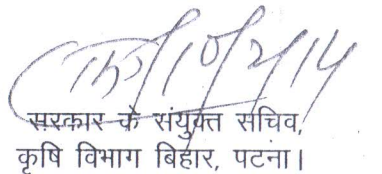 10/2/14
सरकार के संयुक्त सचिव,
कृषि विभाग बिहार, पटना।